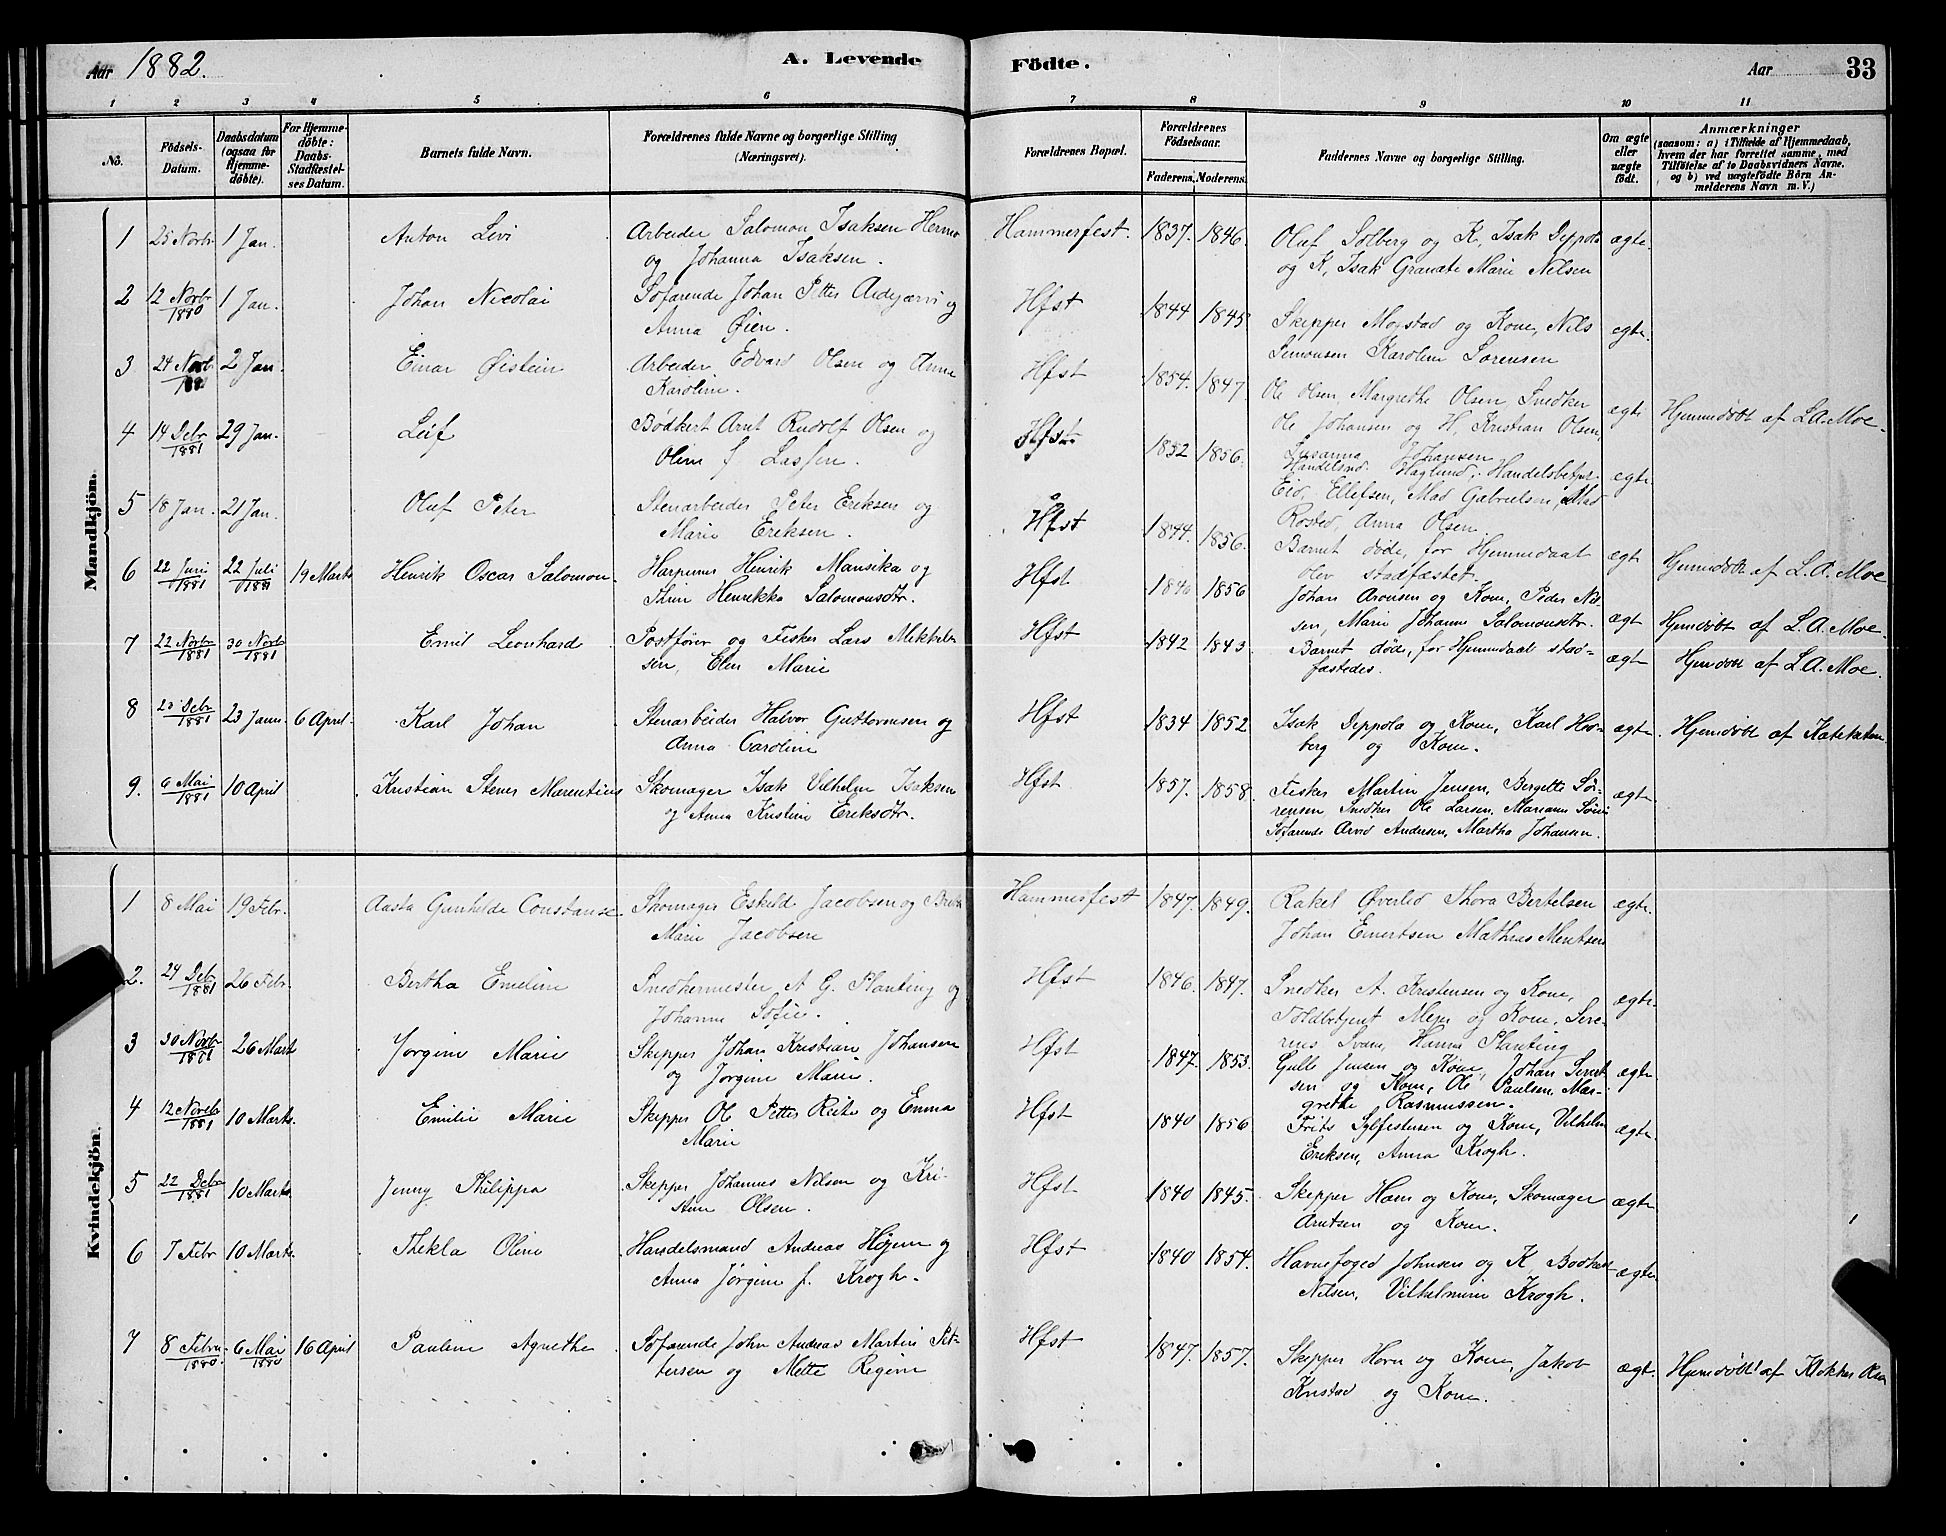 Aar 1882. A. Levende Födte. Aar 33
1 2 3 4 5 6 7 8 9 10 11
No. Födsels-Datum. Daabsdatum (ogsaa for Hjemme-döbte). For Hjemme-döbte: Daabs-Stadfæstel-ses Datum. Barnets fulde Navn. Forældrenes fulde Navne og borgerlige Stilling (Næringsvei). Forældrenes Bopæl. Forældrenes Födselsaar. Faderens. Moderens. Faddernes Navne og borgerlige Stilling. Om ægte eller uægte födt. Anmærkninger (saasom: a) i Tilfælde af Hjemmedaab, hvem der har forrettet samme, med Tilföielse af to Daabsvidners Navne, og b) ved uægtefödte Börn An-melderens Navn m. V.)
Mandkjön.
1 25 Novbr 1 Jan. Anton Levi Arbeider Salomon Isaksen Hammerfest. 1837. 1846. Oluf Solberg og K, Isak Deppola ægte.
og Johanna Isaksen. og K, Isak Granate Marie Nilsen
2 12 Novbr 1880 1 Jan. Johan Nicolai Söfarende Johan Petter og Hfst 1844 1845 Skipper Mogstad og Kone, Nils egte.
Anna Øien. Simonsen Karoline Sorensen
3 24 Novb 2 Jan. Einar Øistein Arbeider Edvard Olsen og Anne Hfst 1854. 1847 Ole Olsen, Margrethe Olsen Snedker ægte Hjemmedøbt af L.A. Moe.
Karoline. Ole Johansen og H, Kristian Olsen,
4 14 Debr 1881 29 Jan. Leif Bödkert Arnt Rudolf Olsen og Hfst 1852 1856. Susanna Johansen ægte.
Oline f Lassen. Handelsmd. Haglund, Handelsbetjet
5 18 Jan. 21 Jan. Oluf Peter Stenarbeider Peter Eriksen og Hfst 1844. 1856. Eid, Ellefsen, Mad Gabrielsen, Mad
Marie Eriksen. Rosted, Anna Olsen
Barnet døde, for Hjemmedaab ægte Hjemmedøbt af L.A. Moe
blev stadfæstet.
6 22 Juni 1881 22 Juli 1881 19 Marts Henrik Oscar Salomon. Henrik Mansika og Hfst 1856 Johan Aronsen og Kone, Peder Nil- ægt Hjemdøbt af L.A. Moe.
Henrikka Salomonsdtr. sen, Marie Johanne Salomonsdtr.
7 22 Novbr 1881 30 Novb 1881 Emil Leonhard Postfører og Fisker Lars Mikkel- Hfst 1842 1843. Barnet døde, for Hjemmedaab stad- ægte Hjemdøbt af L.A. Moe.
sen, Elen Marie fæstedes.
8 Debr 1881 23 Janu. 6 April. Karl Johan Stenarbeider Halvor Guttormsen og Hfst 1834 1852 Isak Deppola og Kone, Karl Hov- ægte. Hjemdøbt af Kateketen
Anna Caroline berg og Kone.
9. 6 Mai 1881 10 April Kristian Stener Marentius Skomager Isak Vilhelm Isaksen Hfst 1857. 1858. Fisker Martin Jensen, Bergette Sö- ægte.
og Anna Kristine Eriksdtr. rensen Snedker Ole Larsen, Marianne
Söfarende Arvid Andersen, Martha Johansen.
Kvindekjön.
1 8 Mai 19 Febr. Aasta Gunhilde Constanse. Skomager Eskild Jacobsen og Hammerfest 1847. 1849. Rakel Øverlid Thora Bertelsen ægte.
Marie Jacobsen Johan Enertsen Mathias Mentsen
2. 24 Deb 1881 26 Febr. Bertha Emeline Snedkermester A G. Planting og Hfst 1846. 1847. Snedker A. Kristensen og Kone, ægte.
Johanne Sofie. Toldbetjent Meyer og Kone, Sere-
nus Svan, Hanna Planting
3 30 Novbr 1881 26 Mart Jørgine Marie Skipper Johan Kristian Johansen Hfst 1847. 1853. Gulle Jensen og Kone, Johan Sivert- ægte.
og Jørgine Marie. sen og Kone, Ole Paulsen, Mar-
grethe Rasmussen.
4 12 Novbr 1881 10 Marts. Emilie Marie Skipper Ole Petter Reite og Emma Hfst 1840 1856 Frits Sylfestersen og Kone, Vilhelm ægte.
Marie Eriksen, Anna Krogh.
5 22 Debr 1881 10 Marts. Jenny Philippa Skipper Johannes Nilsen og Kri- Hfst 1840 1845. Skipper Horn og Kone, Skomager ægte
stine Olsen. Arntsen og Kone.
6 7 Febr 10 Marts. Thekla Oline Handelsmand Andreas Höjem og Hfst 1840 1854. Havnefoged Johnsen og K, Bodker ægte
Anna Jørgine f. Krogh. Nilsen, Vilhelmine Krogh.
7 8 Febru. 1880 6 Mai 1880 16 April Pauline Agnethe Söfarende John Andreas Martin Pet- Hfst 1847. 1857. Skipper Horn og Kone, Jakob ægt. Hjemdøbt af Klokker
tersen og Mette Regine Knstad og Kone.